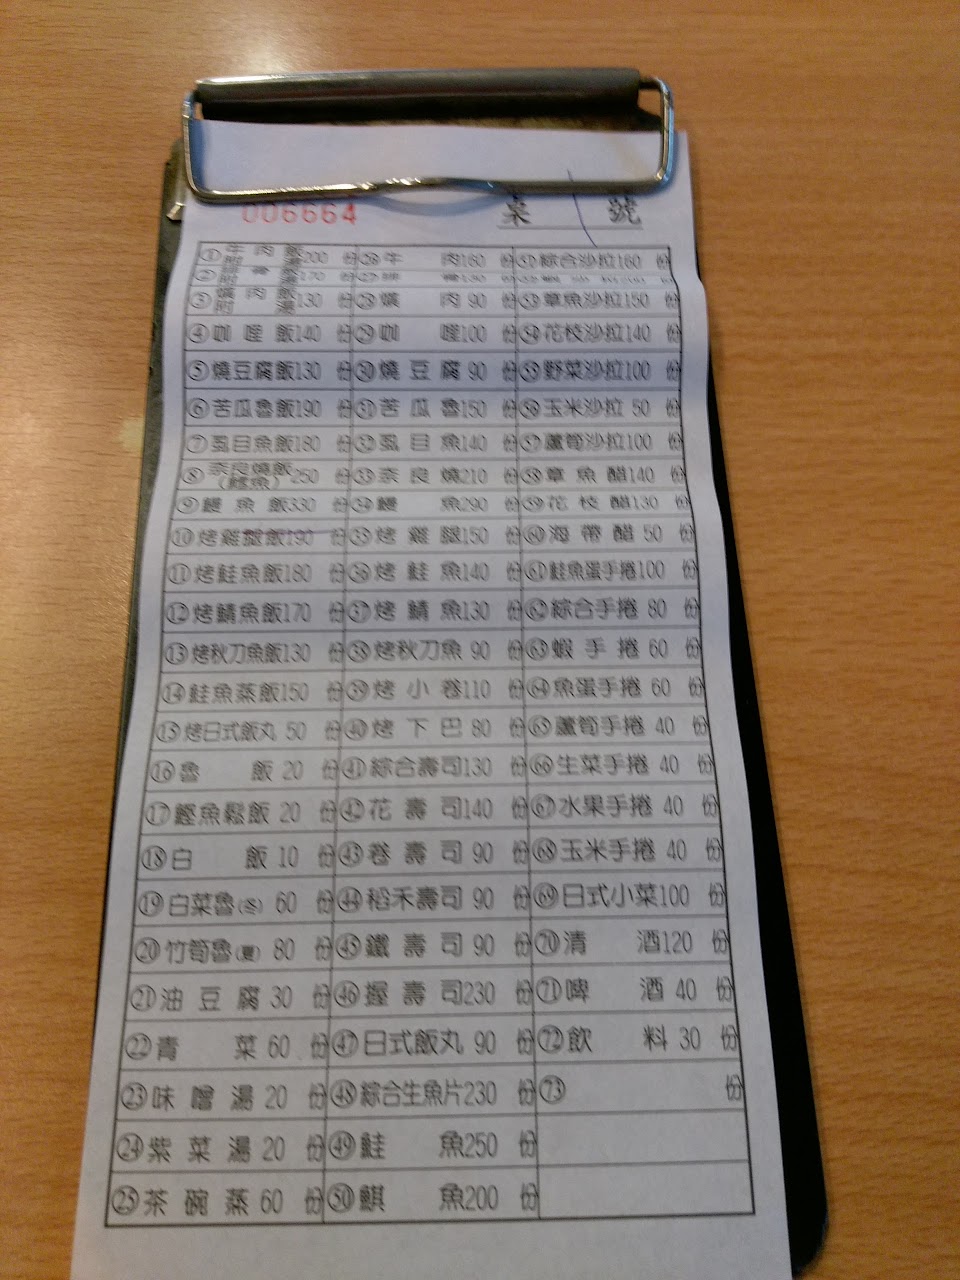 006664 桌 號
①牛肉飯附湯200 份 ㉖牛 肉160 份 �51綜合沙拉160 份
② 170 份 ㉗排 骨130 份 �52
③爌肉飯附湯130 份 ㉘爌 肉 90 份 53章魚沙拉150 份
④咖 哩 飯140 份 ㉙咖 哩100 份 54花枝沙拉140 份
⑤燒豆腐飯130 份 ㉚燒 豆 腐 90 份 55野菜沙拉100 份
⑥苦瓜魯飯190 份 ㉛苦 瓜 魯150 份 56玉米沙拉 50 份
⑦虱目魚飯180 份 ㉜虱 目 魚140 份 57蘆筍沙拉100 份
⑧奈良燒飯(鱈魚)250 份 ㉝奈 良 燒210 份 58章 魚 醋140 份
⑨鰻 魚 飯330 份 ㉞鰻 魚290 份 59花 枝 醋130 份
⑩烤雞腿飯190 份 ㉟烤 雞 腿150 份 60海 帶 醋 50 份
⑪烤鮭魚飯180 份 ㊱烤 鮭 魚140 份 61鮭魚蛋手捲100 份
⑫烤鯖魚飯170 份 ㊲烤 鯖 魚130 份 62綜合手捲 80 份
⑬烤秋刀魚飯130 份 ㊳烤秋刀魚 90 份 63蝦 手 捲 60 份
⑭鮭魚蒸飯150 份 ㊴烤 小 卷110 份 64魚蛋手捲 60 份
⑮烤日式飯丸 50 份 ㊵烤 下 巴 80 份 65蘆筍手捲 40 份
⑯魯 飯 20 份 ㊶綜合壽司130 份 66生菜手捲 40 份
⑰鰹魚鬆飯 20 份 ㊷花 壽 司140 份 67水果手捲 40 份
⑱白 飯 10 份 ㊸卷 壽 司 90 份 68玉米手捲 40 份
⑲白菜魯(冬) 60 份 ㊹稻禾壽司 90 份 69日式小菜100 份
⑳竹筍魯(夏) 80 份 ㊺鐵 壽 司 90 份 70清 酒120 份
㉑油 豆 腐 30 份 ㊻握 壽 司230 份 71啤 酒 40 份
㉒青 菜 60 份 ㊼日式飯丸 90 份 72飲 料 30 份
㉓味 噌 湯 20 份 ㊽綜合生魚片230 份 73 份
㉔紫 菜 湯 20 份 ㊾鮭 魚250 份
㉕茶 碗 蒸 60 份 ㊿鯕 魚200 份